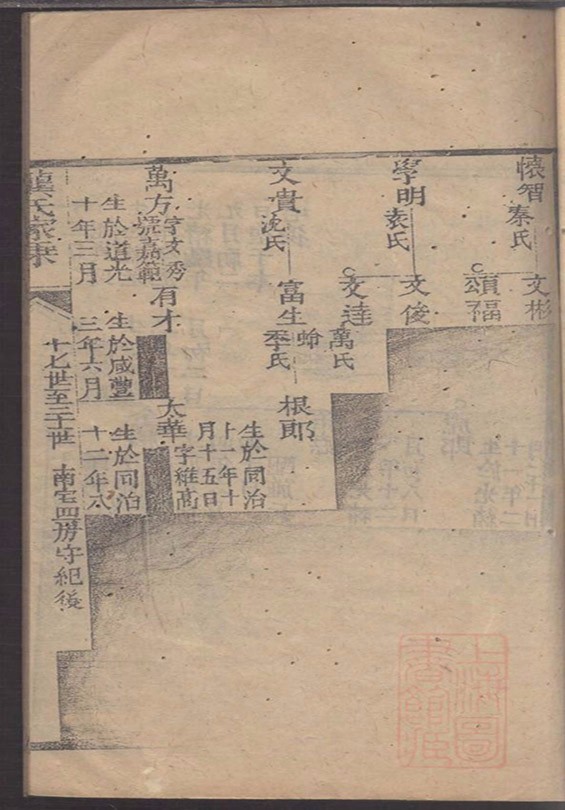 懷智
秦氏
文彬
頌福
學明
袁氏
文俊
文達
萬氏
文貴
沈氏
富生
蛉
季氏
根郎
生於同治
十一年十
月十五日
萬方
字文秀
號嘉範
有才
大華
字維高
生於道光
十年三月
生於咸豐
三年六月
生於同治
十二年八
氏家乘
十七世至二十世
南宅四房守紀後
上海圖
書館藏